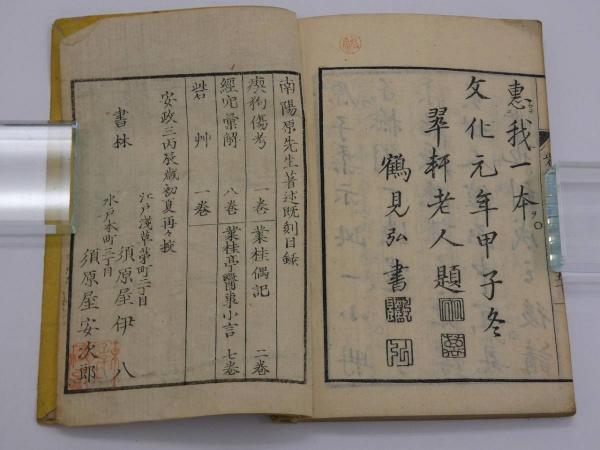 惠我一本
文化元年甲子冬
翠軒老人題
鶴見弘書
南陽原先生著述既刻目録
瘈狗傷考 一卷 叢桂偶記 二卷
經穴彙解 八卷 叢桂亭醫事小言 七卷
砦艸 一卷
安政三丙辰歳初夏再々校
書林
江戸淺草茅町二丁目
須原屋伊八
水戸本町三丁目
須原屋安次郎